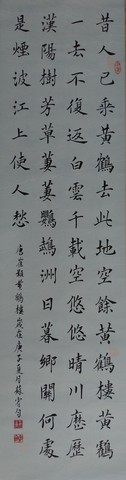 昔人已乘黃鶴去此地空餘黃鶴樓黃鶴
一去不復返白雲千載空悠悠晴川歷歷
漢陽樹芳草萋萋鸚鵡洲日暮鄉關何處
是煙波江上使人愁
唐崔顥黃鶴樓歲在庚子夏月蘇